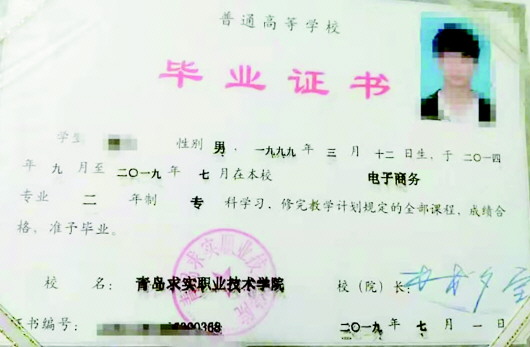 普通高等学校
毕业证书
学生 性别 男，一九九九年 三 月 十二 日生，于 二〇一四
年 九 月至 二〇一九 年 七 月在本校 电子商务
专业 二 年制 专 科学习，修完教学计划规定的全部课程，成绩合
格，准予毕业。
校 名： 青岛求实职业技术学院 校（院）长：
证书编号： 00368 二〇一九 年 七 月 一 日